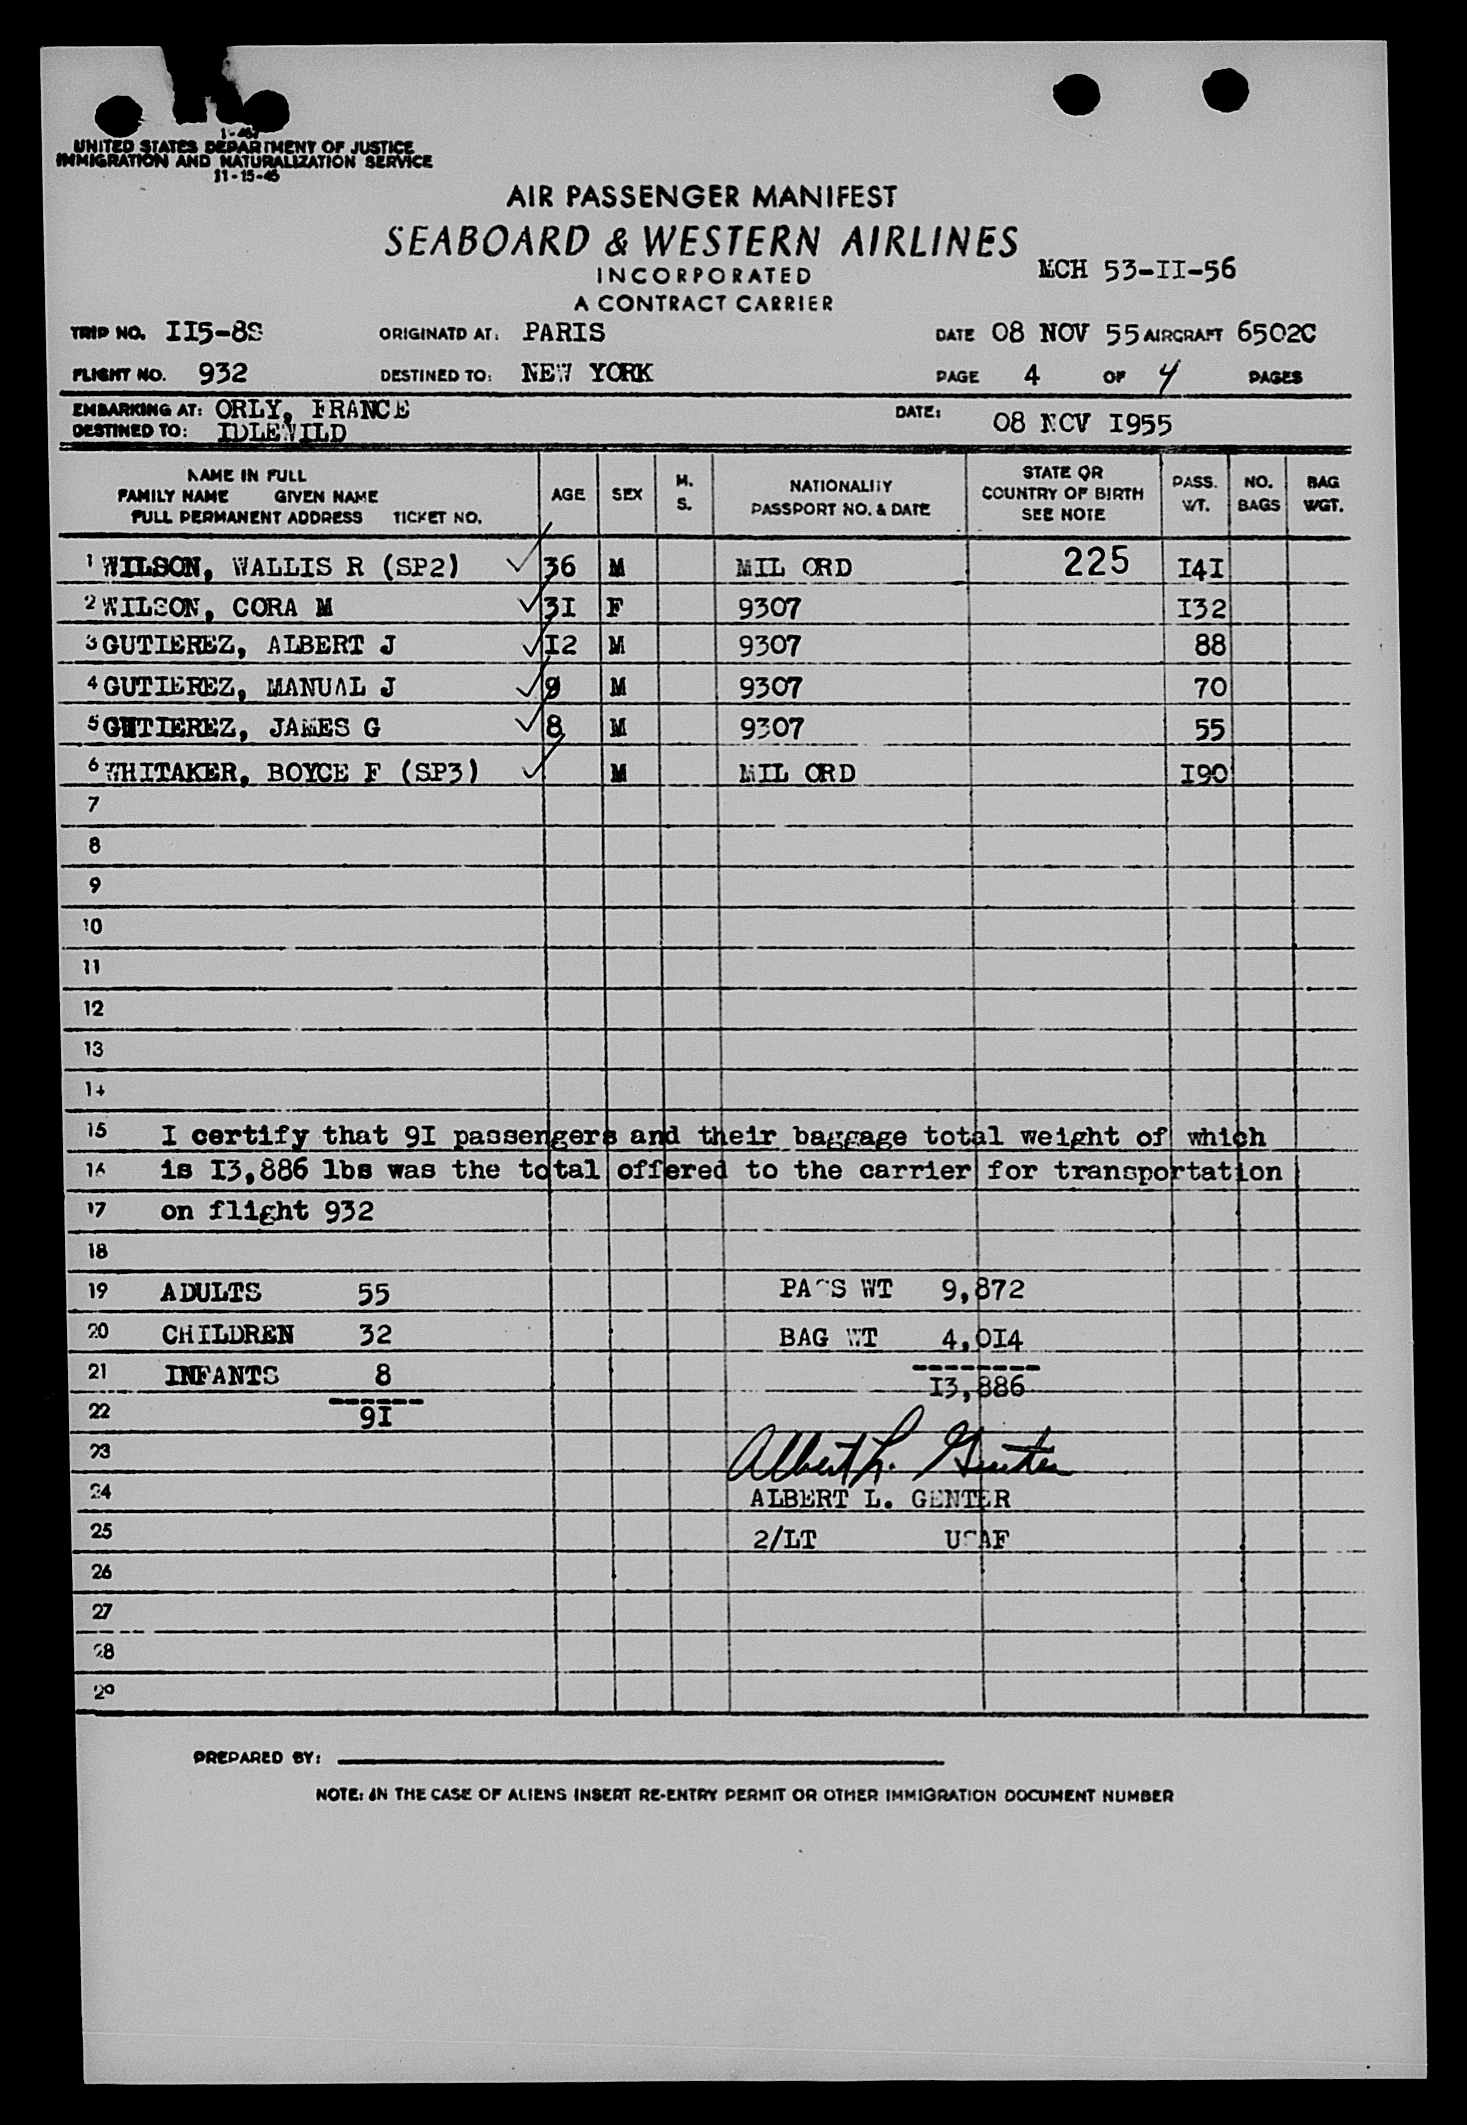 1-467
UNITED STATES DEPARTMENT OF JUSTICE
IMMIGRATION AND NATURALIZATION SERVICE
11-15-45
AIR PASSENGER MANIFEST
SEABOARD & WESTERN AIRLINES
INCORPORATED
MCH 53-II-56
A CONTRACT CARRIER
TRIP NO. II5-8S ORIGINATD AT: PARIS DATE 08 NOV 55 AIRCRAFT 6502C
FLIGHT NO. 932 DESTINED TO: NEW YORK PAGE 4 OF 4 PAGES
EMBARKING AT: ORLY, FRANCE DATE: 08 NOV I955
DESTINED TO: IDLEWILD
NAME IN FULL
FAMILY NAME GIVEN NAME
FULL PERMANENT ADDRESS TICKET NO.
AGE SEX M. S.
NATIONALITY
PASSPORT NO. & DATE
STATE OR
COUNTRY OF BIRTH
SEE NOTE
PASS. WT.
NO. BAGS
BAG WGT.
1 WILSON, WALLIS R (SP2) ✓ 36 M MIL ORD 225 I4I
2 WILSON, CORA M ✓ 3I F 9307 I32
3 GUTIEREZ, ALBERT J ✓ I2 M 9307 88
4 GUTIEREZ, MANUAL J ✓ 9 M 9307 70
5 GUTIEREZ, JAMES G ✓ 8 M 9307 55
6 WHITAKER, BOYCE F (SP3) ✓ M MIL ORD I90
7
8
9
10
11
12
13
14
15 I certify that 9I passengers and their baggage total weight of which
16 is I3,886 lbs was the total offered to the carrier for transportation
17 on flight 932
18
19 ADULTS 55 PASS WT 9,872
20 CHILDREN 32 BAG WT 4,0I4
21 INFANTS 8 I3,886
22 9I
23 Albert L. Genter
24 ALBERT L. GENTER
25 2/LT USAF
26
27
28
29
PREPARED BY:
NOTE: IN THE CASE OF ALIENS INSERT RE-ENTRY PERMIT OR OTHER IMMIGRATION DOCUMENT NUMBER